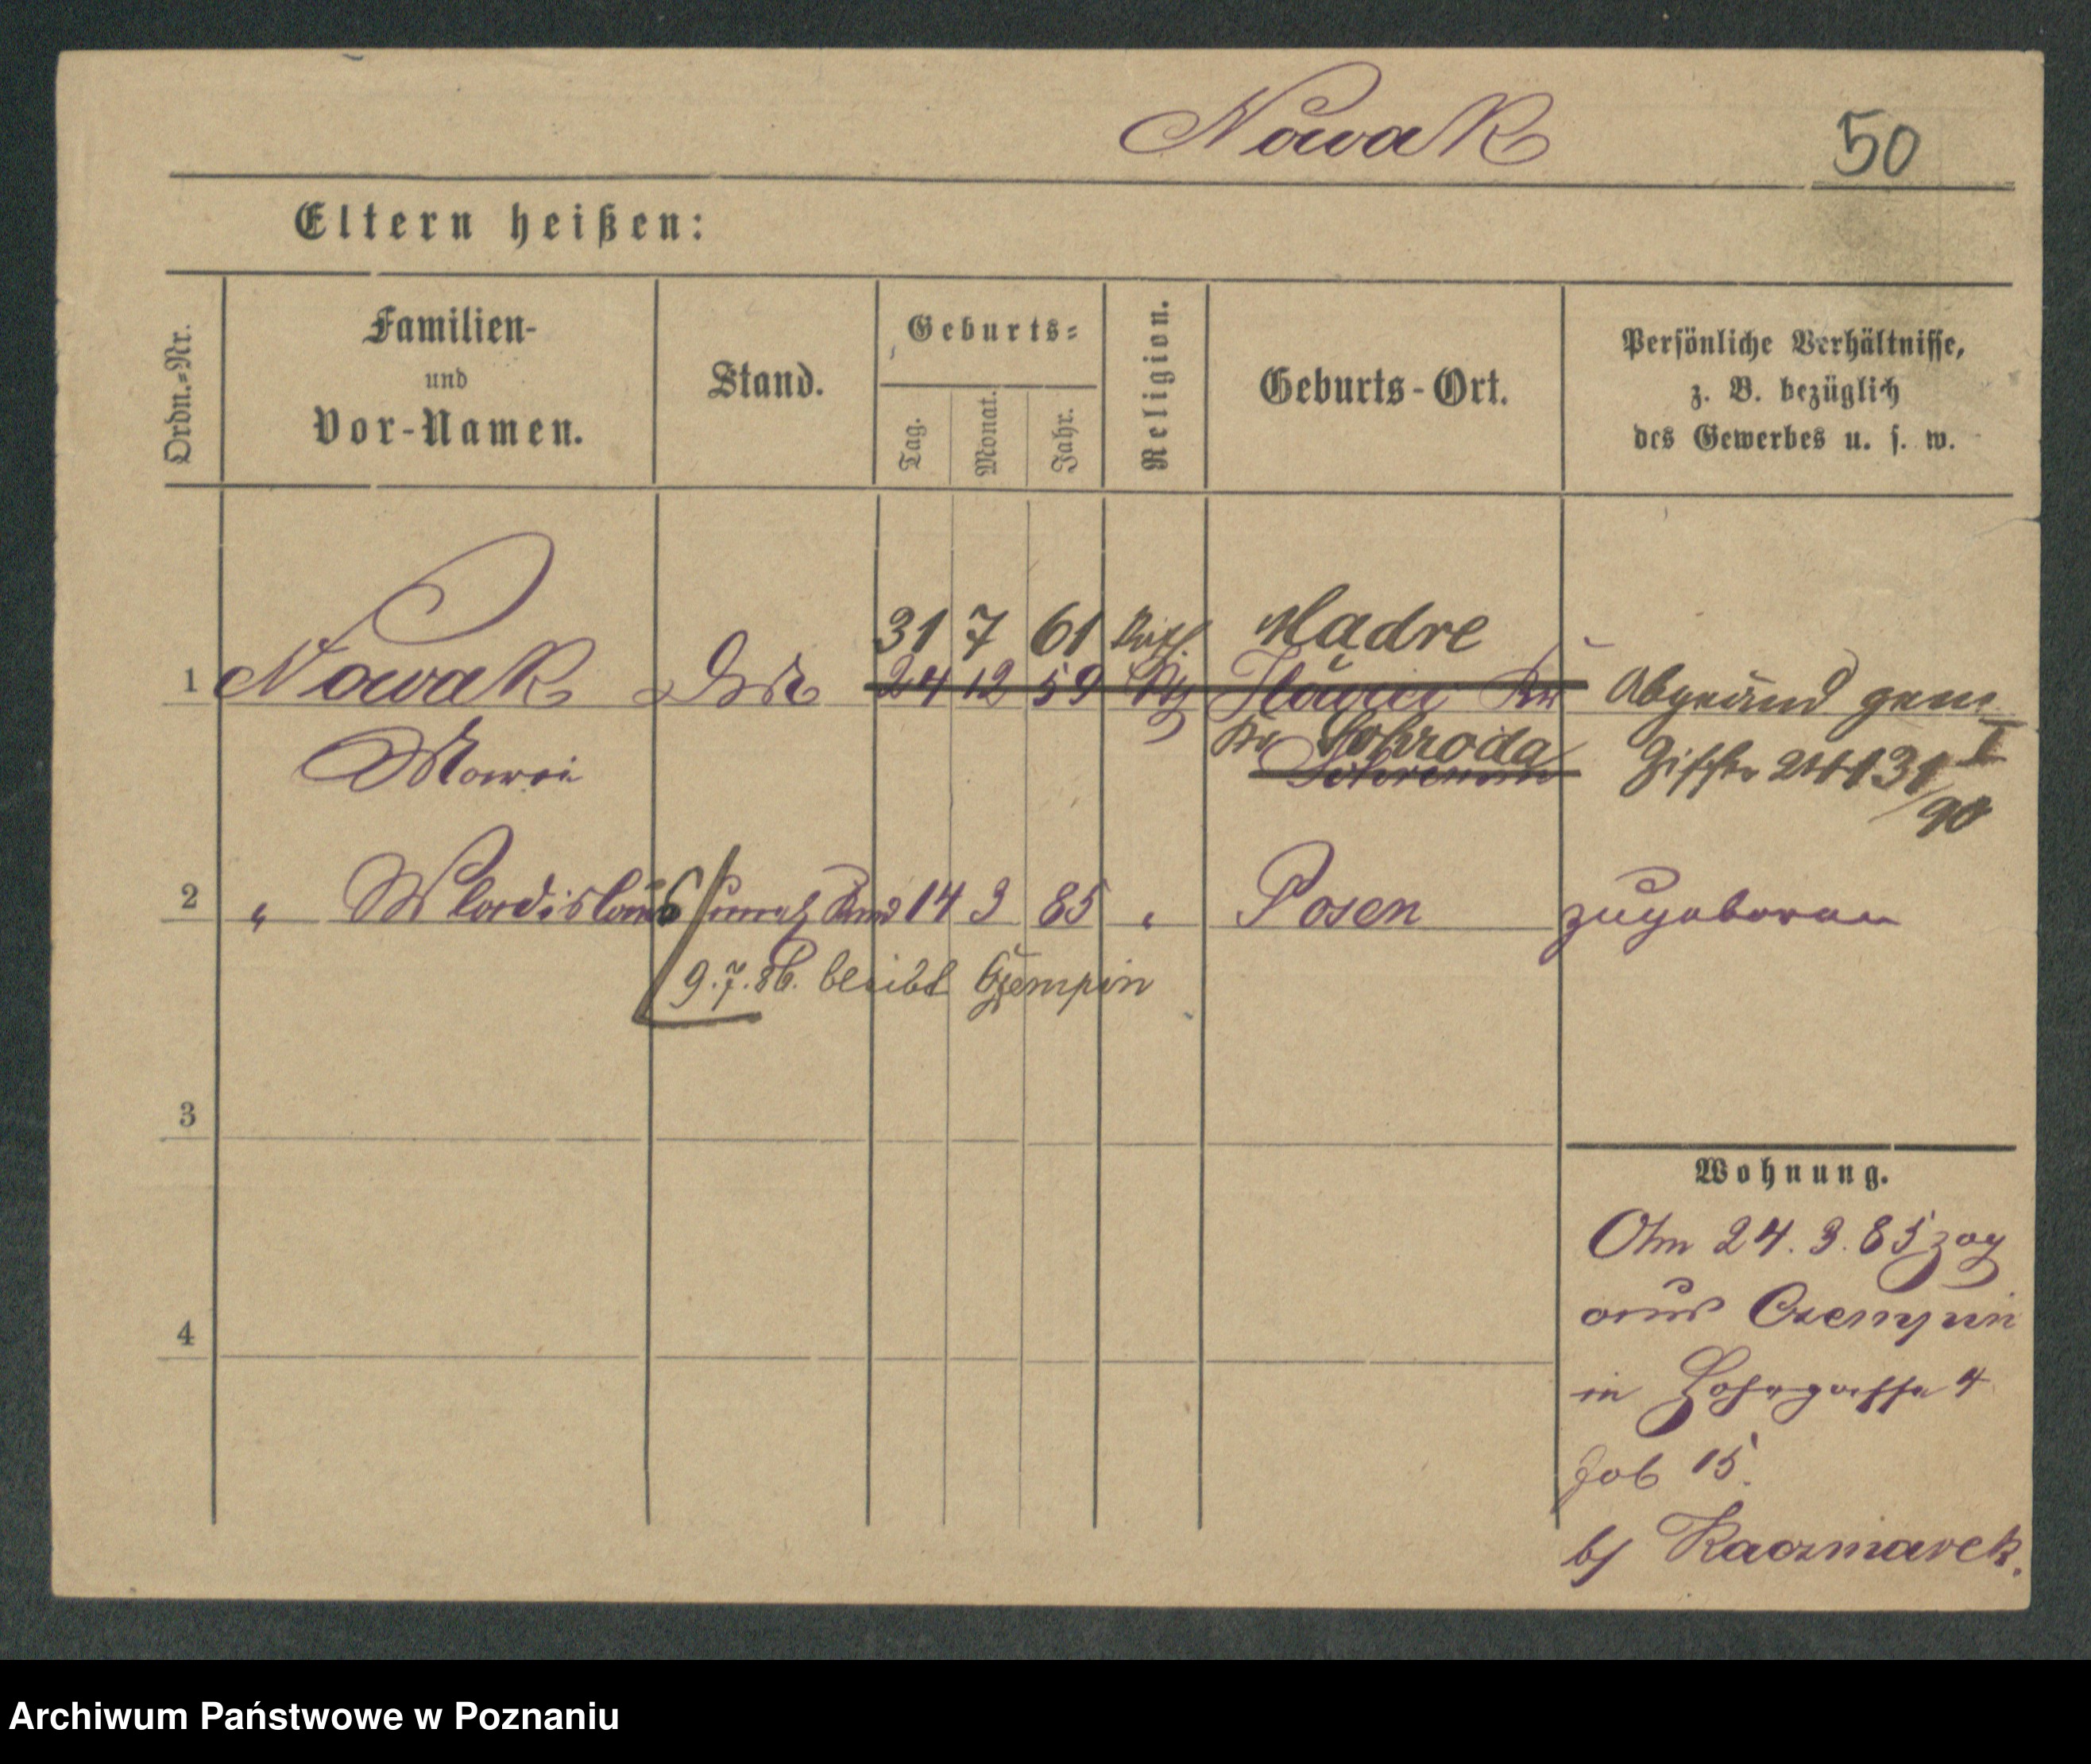 Nowak 50
Eltern heißen:
Ordn.-Nr.
Familien-
und
Vor-Namen.
Stand.
Geburts-
Tag. Monat. Jahr.
Religion.
Geburts-Ort.
Persönliche Verhältnisse,
z. B. bezüglich
des Gewerbes u. s. w.
31 7 61 Mądre
1 Nowak 24 12 59 Abgeänd gem
Kr Schroda
Marie Ziffer 24131 I/90
2 " Wladislaus Kind 14 3 85 " Posen zugeboren
9.7.86. bleibt Czempin
3
4
Wohnung.
Am 24. 3. 85 zog
aus Czempin
in 4
Job 15.
b/ Kaczmarek.
Archiwum Państwowe w Poznaniu